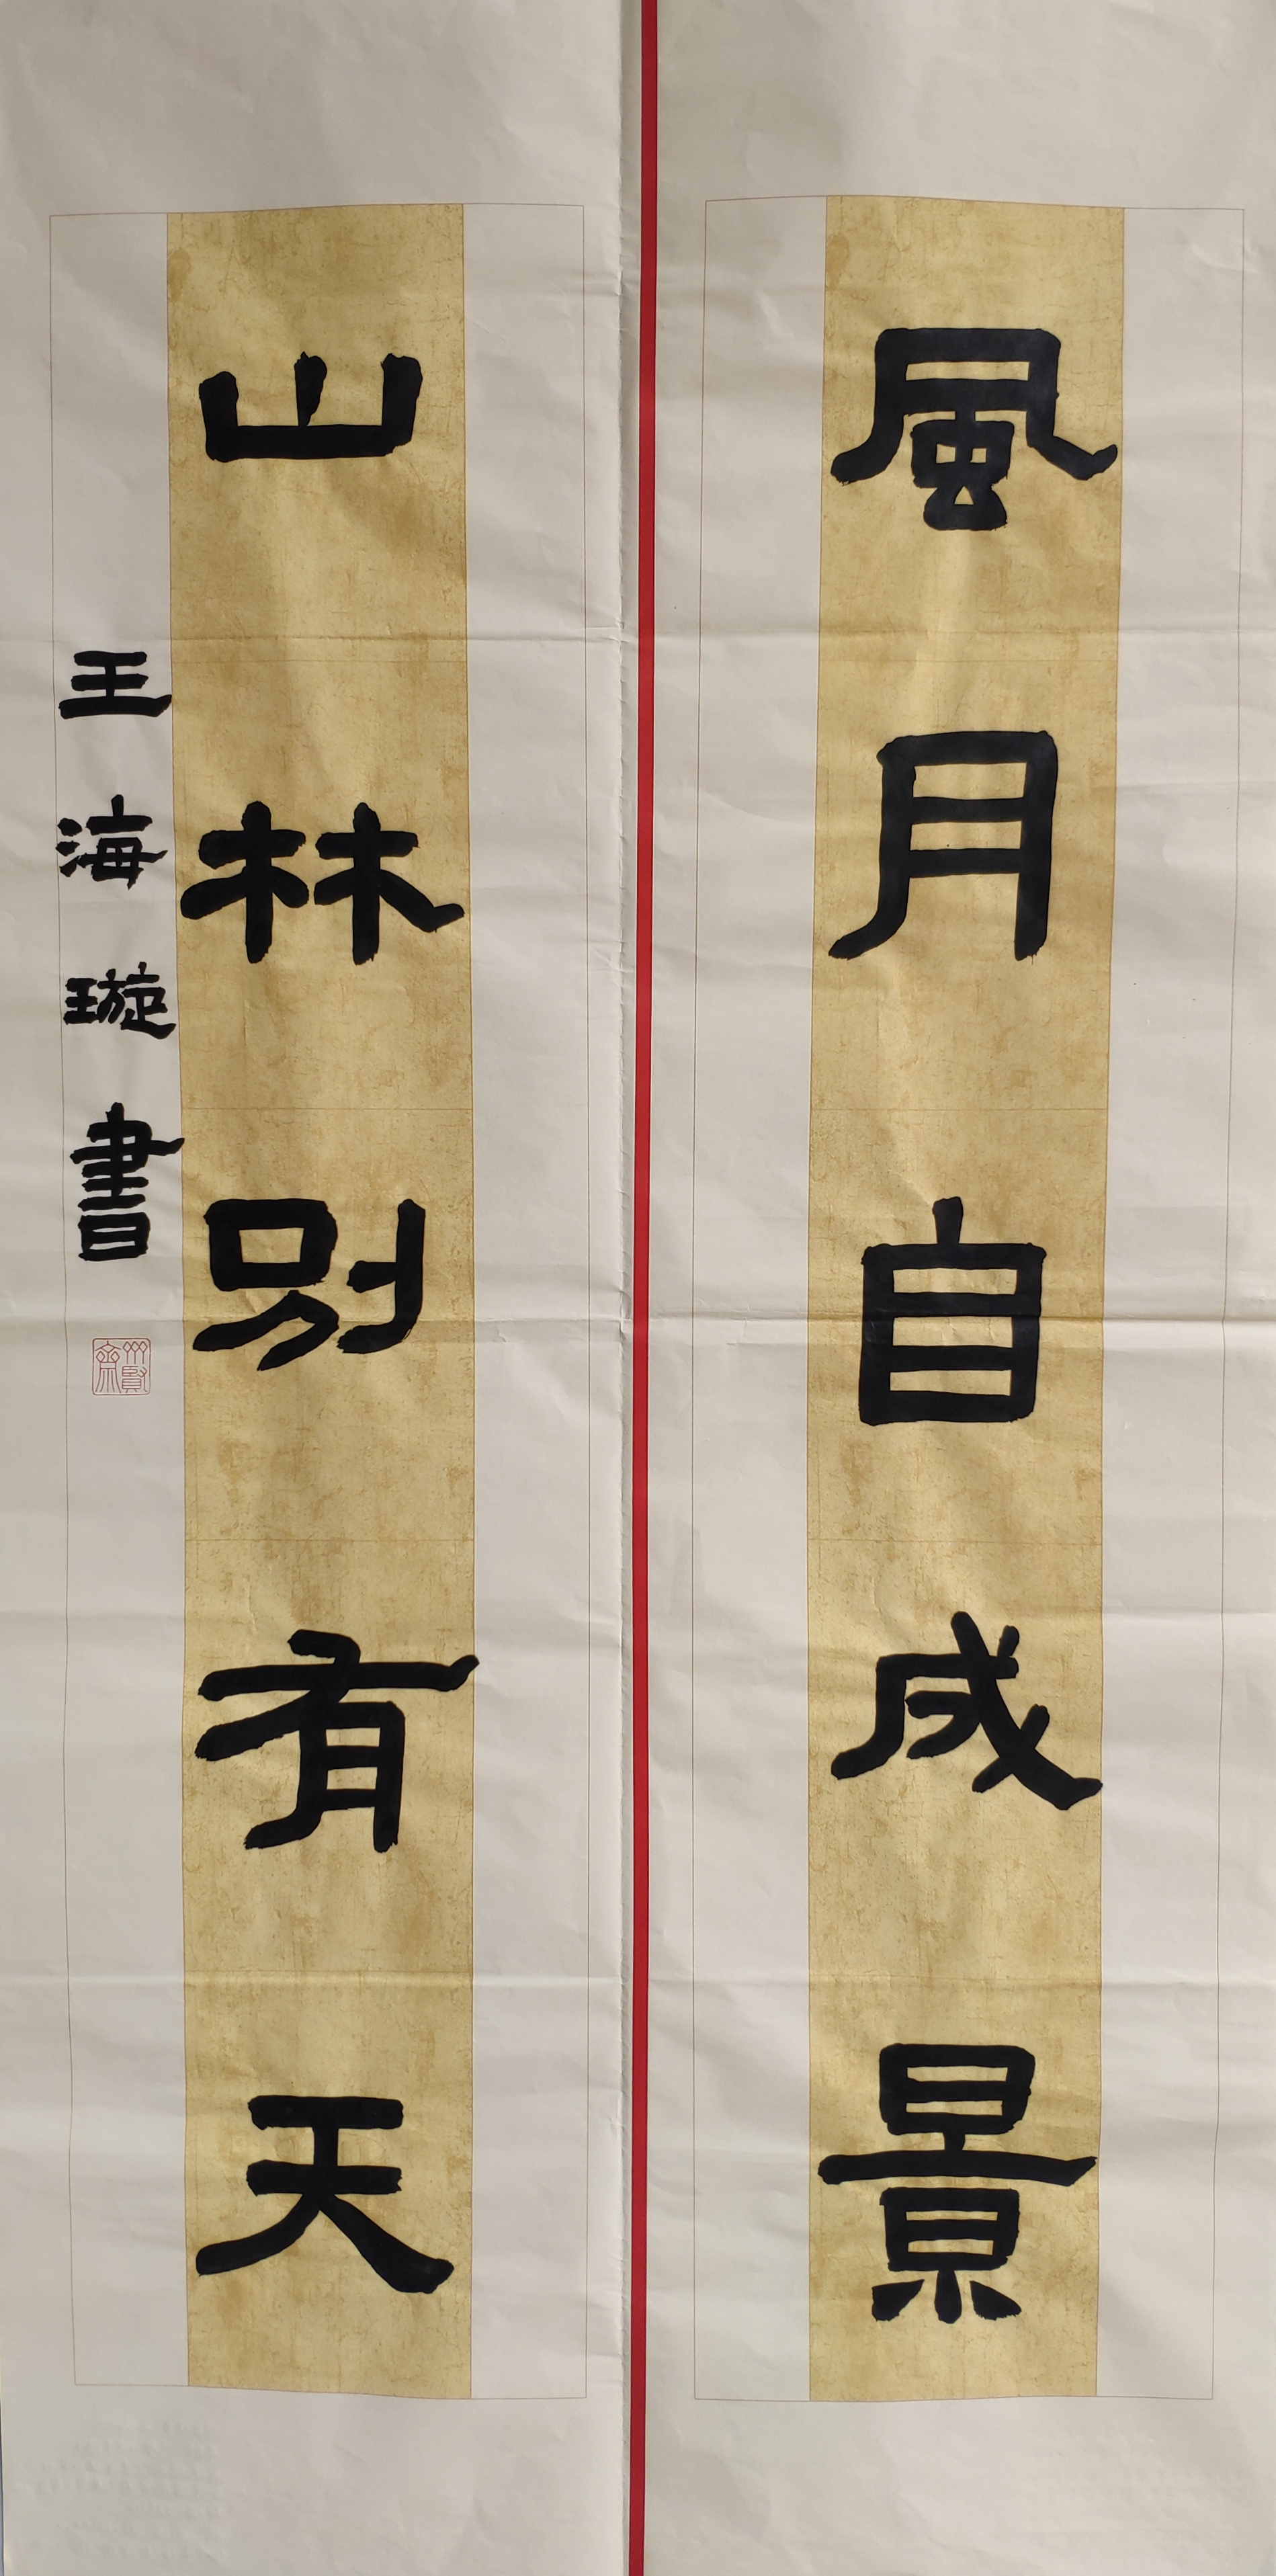 風月自成景
山林別有天
王海璇書